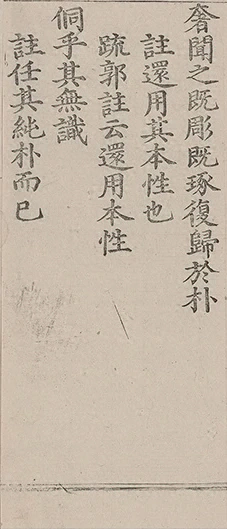 奢聞之既彫既琢復歸於朴
註還用其本性也
疏郭註云還用本性
侗乎其無識
註任其純朴而已